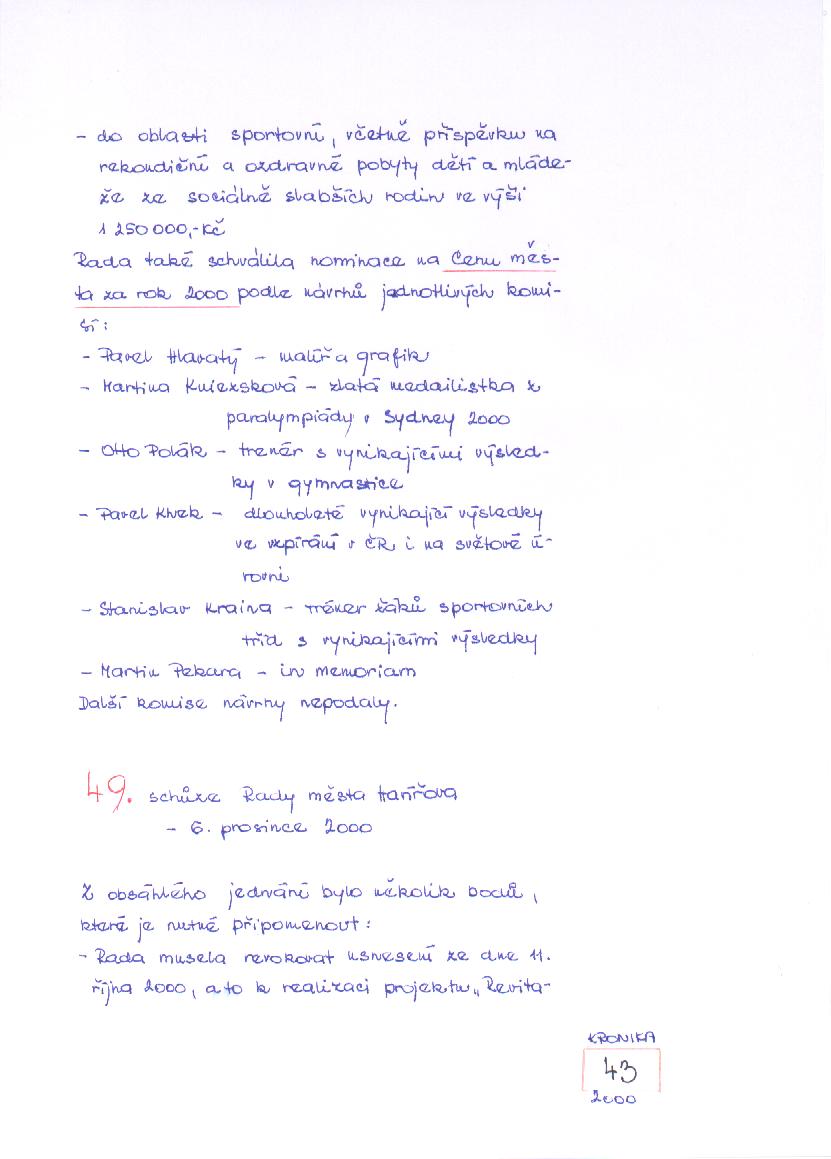 - do oblasti sportovní, včetně příspěvku na
rekondiční a ozdravné pobyty dětí a mláde-
že ze sociálně slabších rodin ve výši
1 250 000,-Kč
Rada také schválila nominace na Cenu měs-
ta za rok 2000 podle návrhů jednotlivých komi-
sí:
- Pavel Hlavatý - malíř a grafik
- Martina Kniezsková - zlatá medailistka z
paralympiády v Sydney 2000
- Otto Polák - trenér s vynikajícími výsled-
ky v gymnastice
- Pavel Khek - dlouholeté vynikající výsledky
ve vzpírání v ČR i na světové ú-
rovni
- Stanislav Kraina - tréner žáků sportovních
tříd s vynikajícími výsledky
- Martin Pekara - in memoriam
Další komise návrhy nepodaly.
49. schůze Rady města Havířova
- 6. prosince 2000
Z obsáhlého jednání bylo několik bodů,
které je nutné připomenout:
- Rada musela revokovat usnesení ze dne 11.
října 2000, a to k realizaci projektu „Revita-
KRONIKA
43
2000